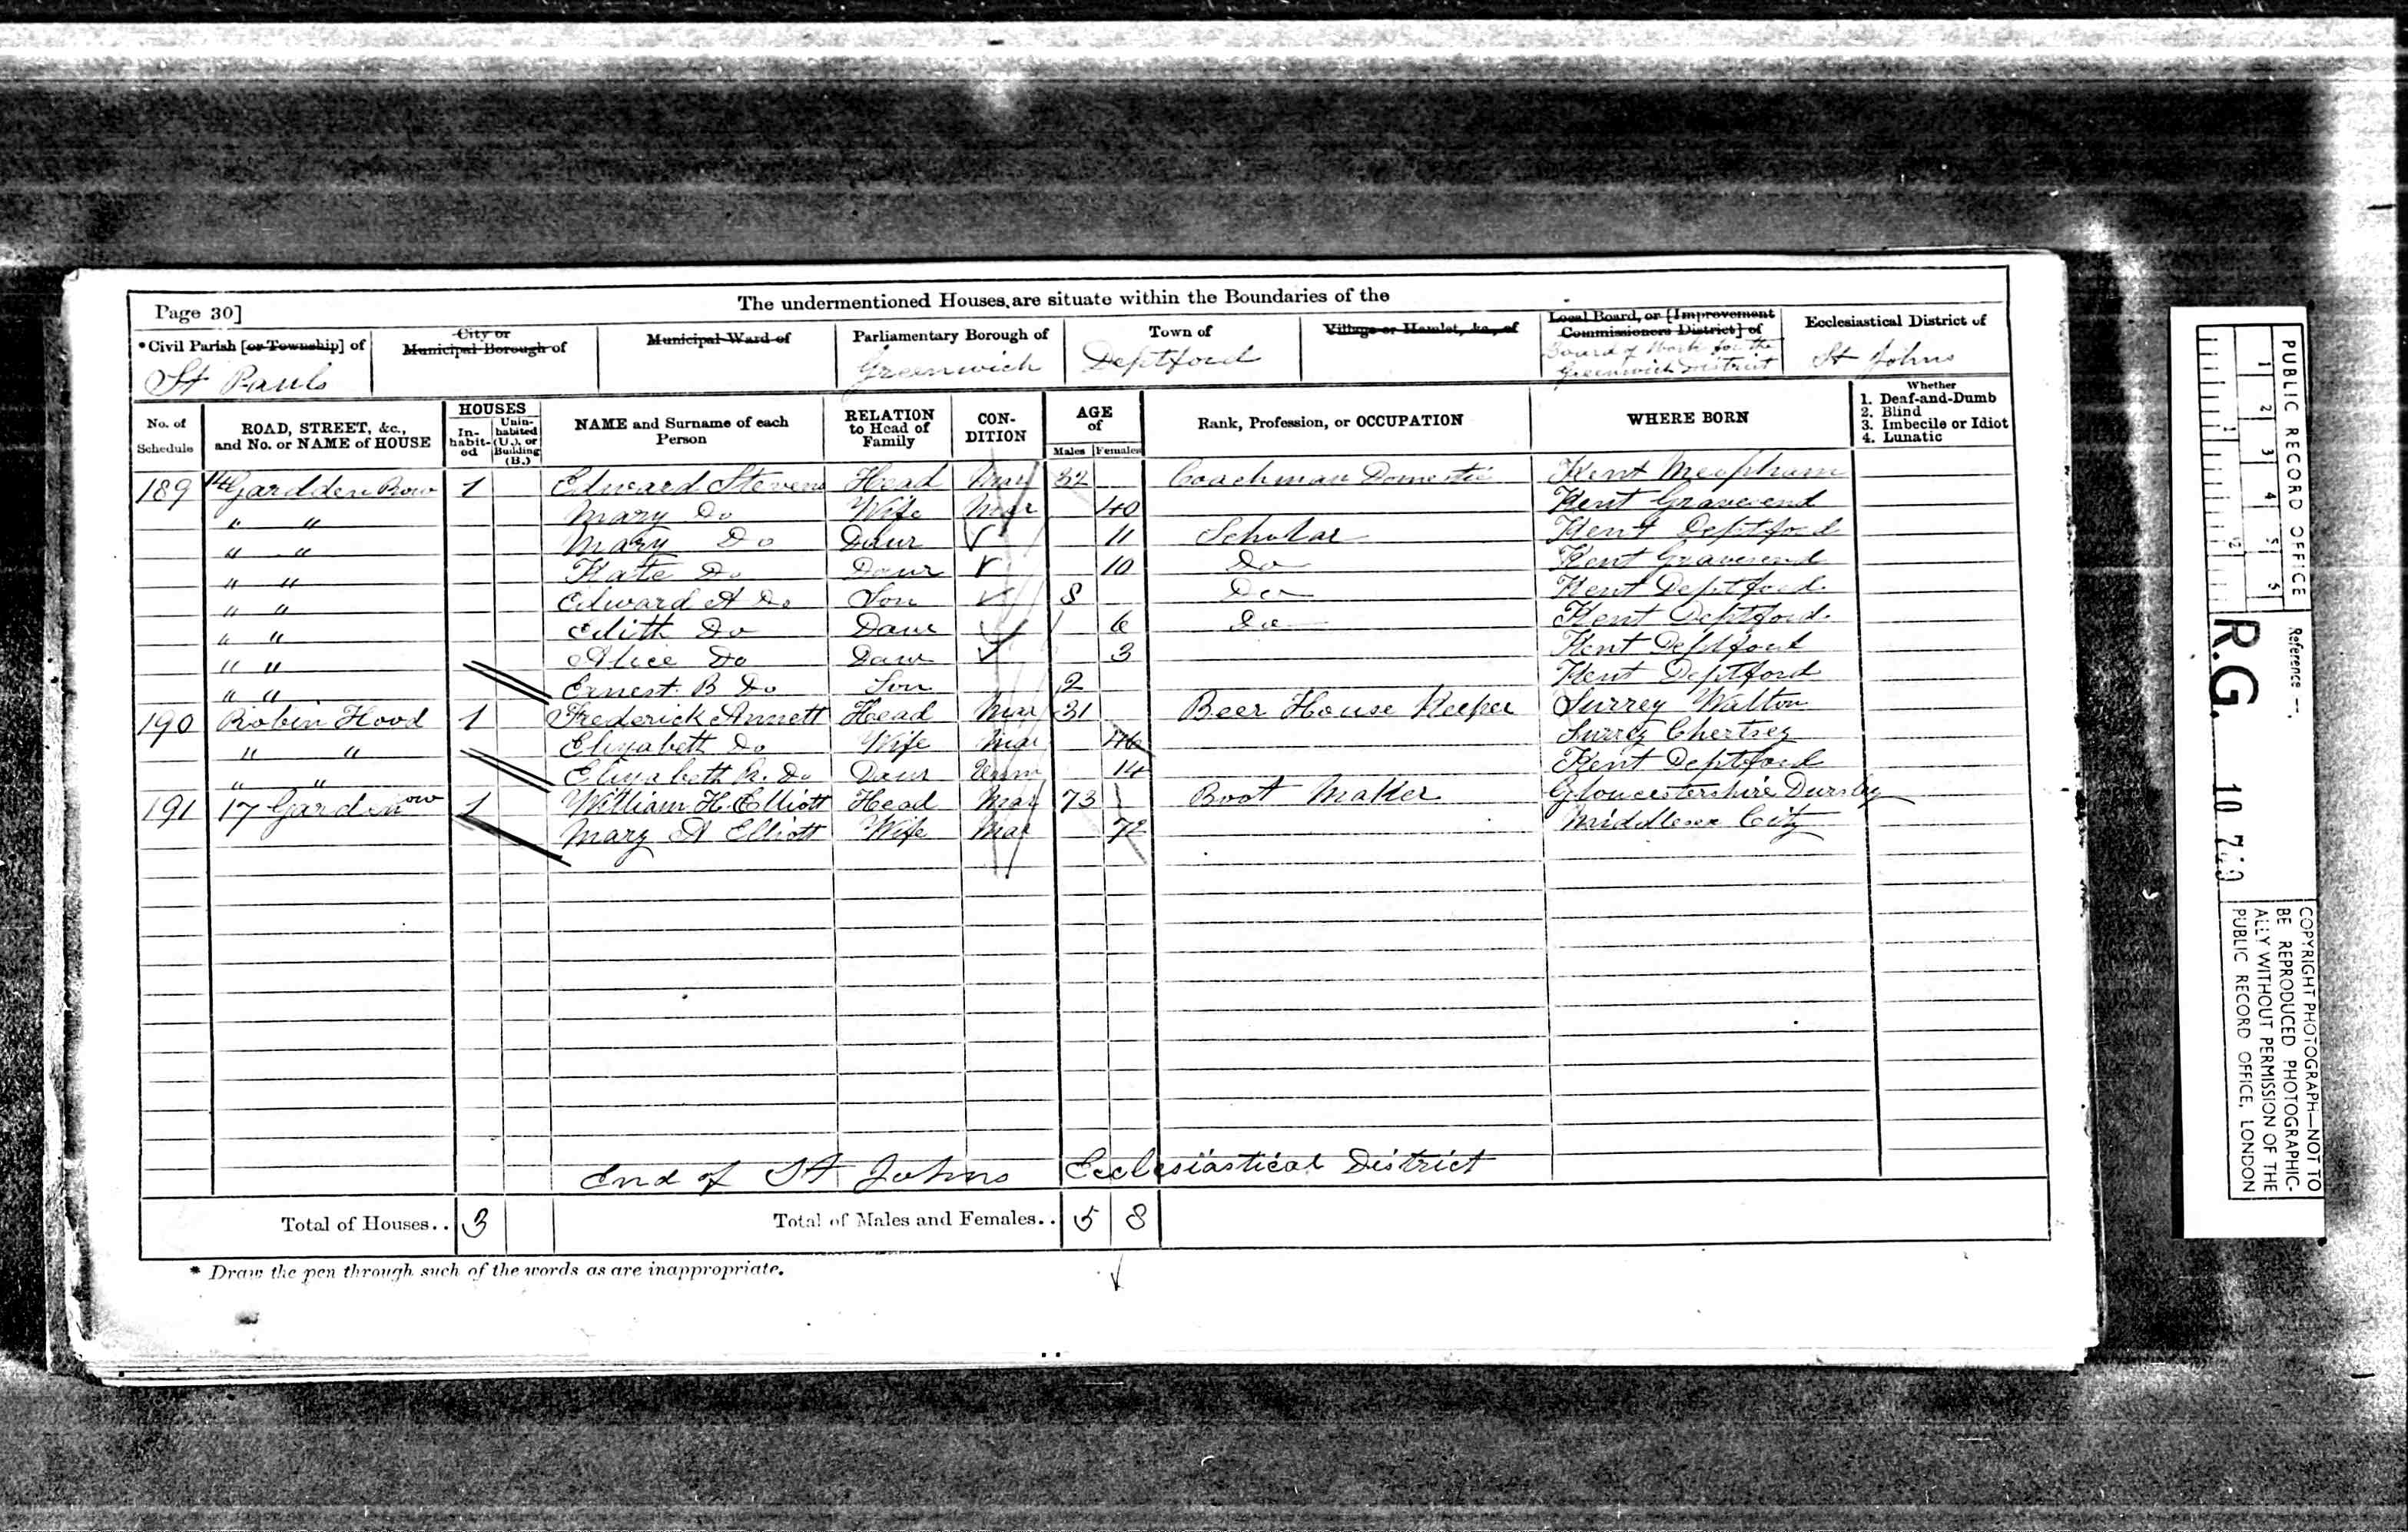 Page 30]
The undermentioned Houses are situate within the Boundaries of the
*Civil Parish [or Township] of
City or Municipal Borough of
Municipal Ward of
Parliamentary Borough of
Town of
Village or Hamlet, &c., of
Local Board, or [Improvement Commissioners District] of
Ecclesiastical District of
St Pauls
Greenwich
Deptford
Board of Work for the Greenwich District
St Johns
No. of Schedule
ROAD, STREET, &c., and No. or NAME of HOUSE
HOUSES
In-habit-ed
Unin-habited (U.), or Building (B.)
NAME and Surname of each Person
RELATION to Head of Family
CON-DITION
AGE of
Males Females
Rank, Profession, or OCCUPATION
WHERE BORN
Whether
1. Deaf-and-Dumb
2. Blind
3. Imbecile or Idiot
4. Lunatic
189 14 Gardden Row 1 Edward Stevens Head Mar 32 Coachman Domestic Kent Meopham
" " Mary Do Wife Mar 40 Kent Gravesend
" " Mary Do Daur 11 Scholar Kent Deptford
" " Kate Do Daur 10 Do Kent Gravesend
" " Edward A Do Son 8 Do Kent Deptford
" " Edith Do Daur 6 Do Kent Deptford
" " Alice Do Daur 3 Kent Deptford
" " Ernest B Do Son 2 Kent Deptford
190 Robin Hood 1 Frederick Annett Head Mar 31 Beer House Keeper Surrey Walton
" " Elizabeth Do Wife Mar 46 Surrey Chertsey
" " Elizabeth Do Daur Unm 14 Kent Deptford
191 17 Garden row 1 William H. Elliott Head Mar 73 Boot Maker Gloucestershire Dursley
Mary A Elliott Wife Mar 72 Middlesex City
End of St Johns Ecclesiastical District
Total of Houses.. 3 Total of Males and Females.. 5 8
* Draw the pen through such of the words as are inappropriate.
PUBLIC RECORD OFFICE
1 2 3 4 5 6
1 2
Reference:-
R.G. 10
COPYRIGHT PHOTOGRAPH—NOT TO
BE REPRODUCED PHOTOGRAPHIC-
ALLY WITHOUT PERMISSION OF THE
PUBLIC RECORD OFFICE, LONDON